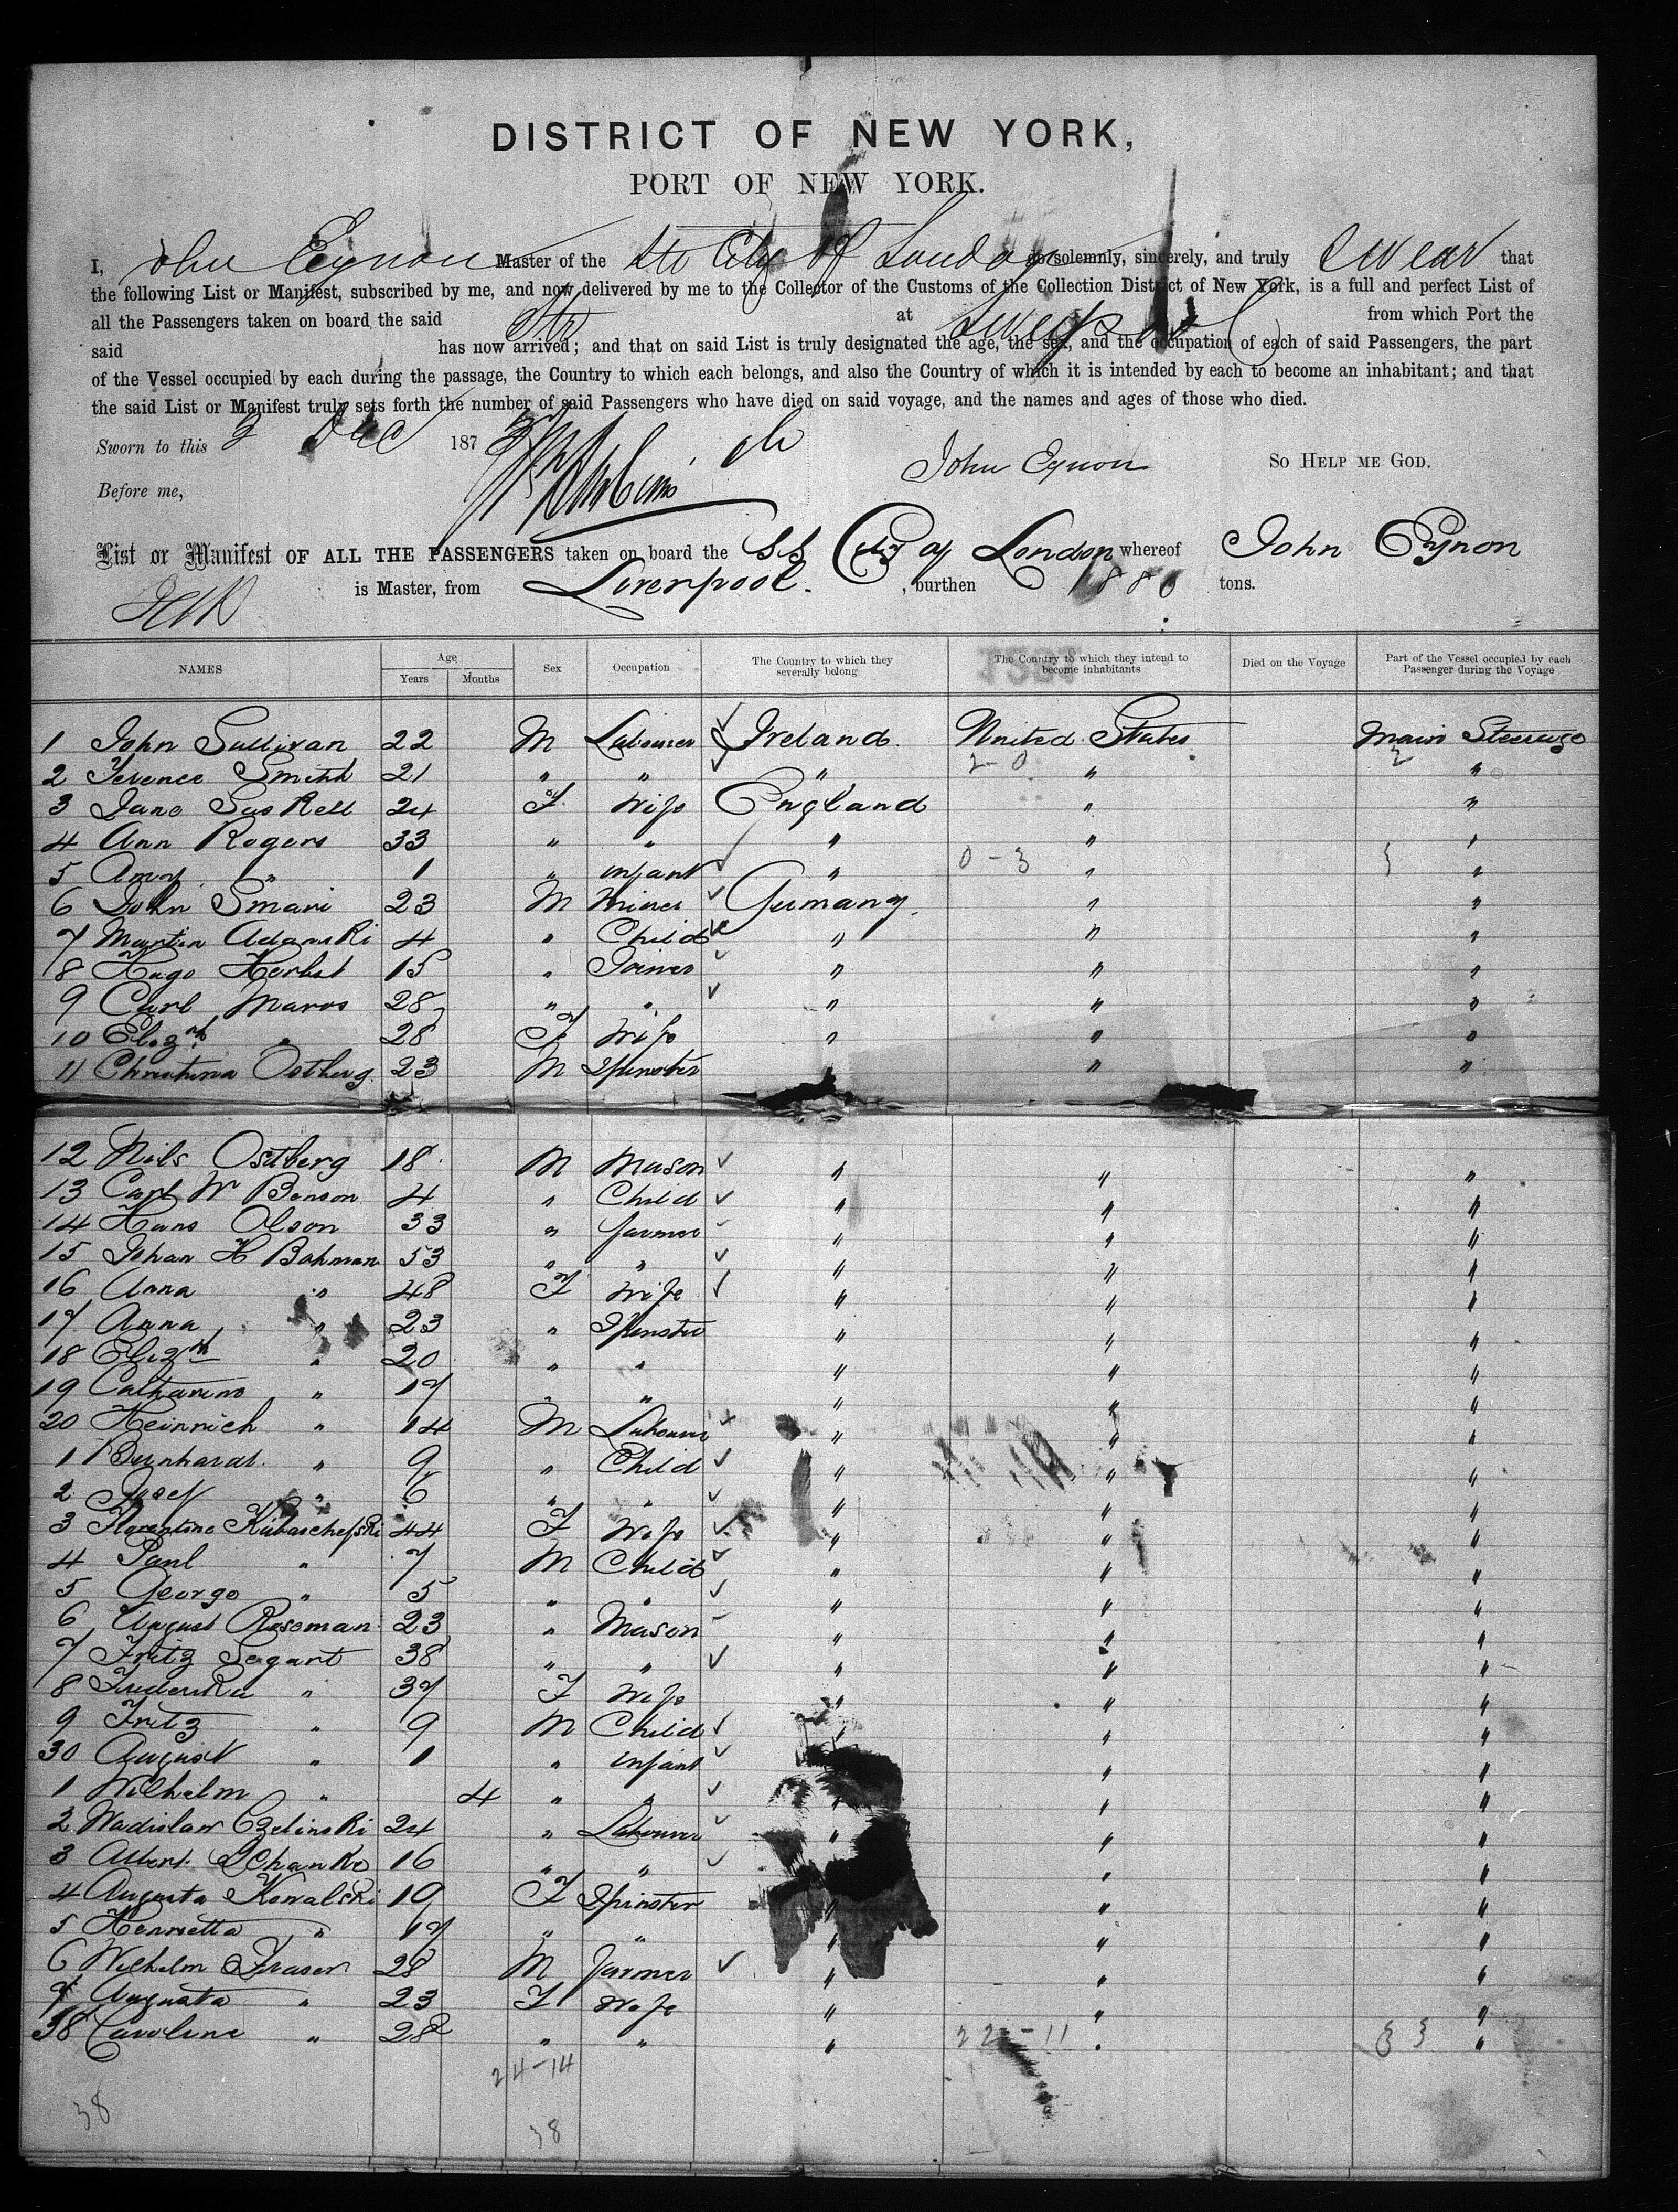 DISTRICT OF NEW YORK,
PORT OF NEW YORK.
I, John Eynon Master of the Str City of London do solemnly, sincerely, and truly Swear that
the following List or Manifest, subscribed by me, and now delivered by me to the Collector of the Customs of the Collection District of New York, is a full and perfect List of
all the Passengers taken on board the said Str at Liverpool from which Port the
said has now arrived; and that on said List is truly designated the age, the sex, and the occupation of each of said Passengers, the part
of the Vessel occupied by each during the passage, the Country to which each belongs, and also the Country of which it is intended by each to become an inhabitant; and that
the said List or Manifest truly sets forth the number of said Passengers who have died on said voyage, and the names and ages of those who died.
Sworn to this 3 Dec 187
John Eynon So Help me God.
Before me,
List or Manifest OF ALL THE PASSENGERS taken on board the S.S. City of London whereof John Eynon
is Master, from Liverpool. , burthen 1880 tons.
NAMES Age Years Months Sex Occupation The Country to which they severally belong The Country to which they intend to become inhabitants Died on the Voyage Part of the Vessel occupied by each Passenger during the Voyage
1 John Sullivan 22 M Labourer Ireland United States Main Steerage
2 Terence Smith 21 " " " " "
2-0
3 Jane Gaskell 24 F wife England " "
4 Ann Rogers 33 " " " " "
0-3
5 Amy " 1 " infant " " "
6 John Smari 23 M Miner Germany " "
7 Martin Adamski 4 " Child " " "
8 Hugo Herbst 15 " Joiner " " "
9 Carl Maros 28 " " " " "
10 Elizth " 28 F Wife " " "
11 Christina Ostberg 23 M Spinster " "
12 Nils Ostberg 18 M Mason " " "
13 Carl W Benson 4 " Child " " "
14 Hans Olson 33 " farmer " " "
15 Johan H Bahman 53 " " " " "
16 Anna " 48 F Wife " " "
17 Anna " 23 " Spinster " " "
18 Elizth " 20 " " " " "
19 Catharine " 17 " " " " "
20 Heinrich " 14 M Labourer " " "
1 Bernhardt " 9 " Child " " "
2 Josef " 6 " " " " "
3 Florentine Kubaschefski 44 F Wife " " "
4 Paul " 7 M Child " " "
5 George " 5 " " " " "
6 August Roseman 23 " Mason " " "
7 Fritz Segart 38 " " " " "
8 Frederika " 37 F Wife " " "
9 Fritz " 9 M Child " " "
30 August " 1 " infant " "
1 Wilhelm " 4 " " " " "
2 Wadislaw Czelinski 24 " Labourer " " "
3 Albert Schanke 16 " " " "
4 Augusta Kowalski 19 F Spinster " " "
5 Henrietta " 17 " " " " "
6 Wilhelm Fraser 28 M farmer " " "
7 Augusta " 23 F Wife " " "
38 Caroline " 28 " " " " "
22-11
24-14
38
38